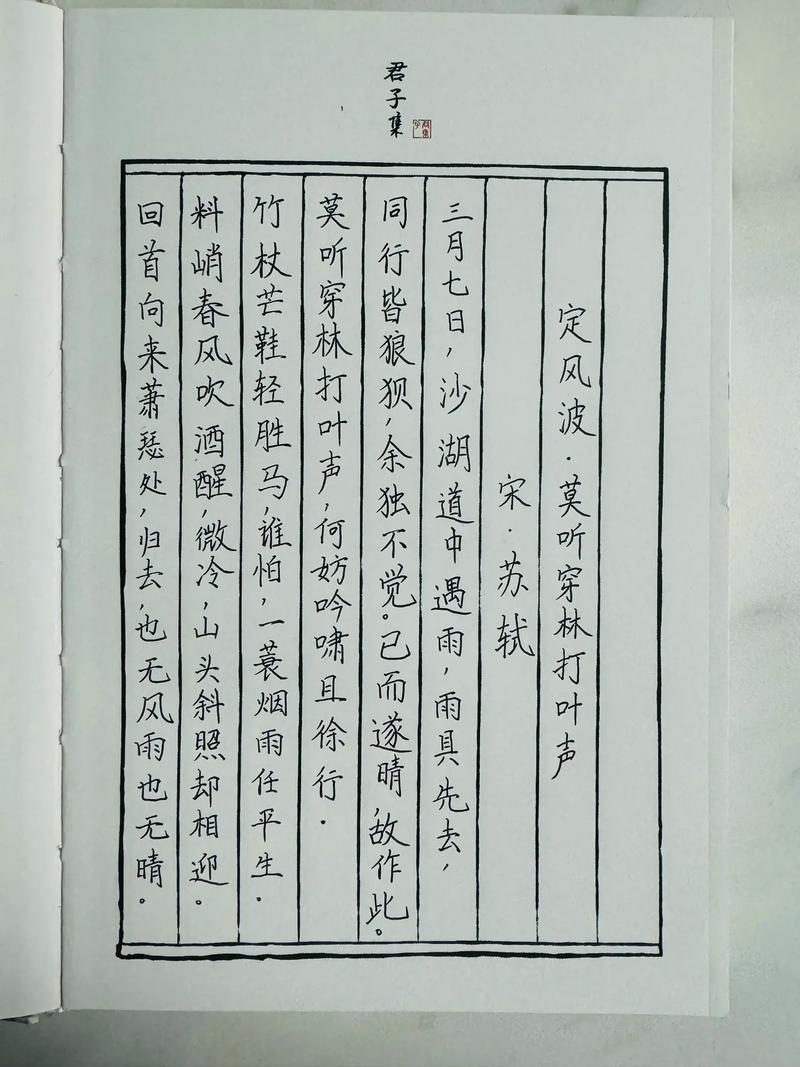 君子集
定风波·莫听穿林打叶声
宋·苏轼
三月七日,沙湖道中遇雨,雨具先去,
同行皆狼狈,余独不觉。已而遂晴,故作此。
莫听穿林打叶声,何妨吟啸且徐行.
竹杖芒鞋轻胜马,谁怕,一蓑烟雨任平生.
料峭春风吹酒醒,微冷,山头斜照却相迎。
回首向来萧瑟处,归去,也无风雨也无晴。